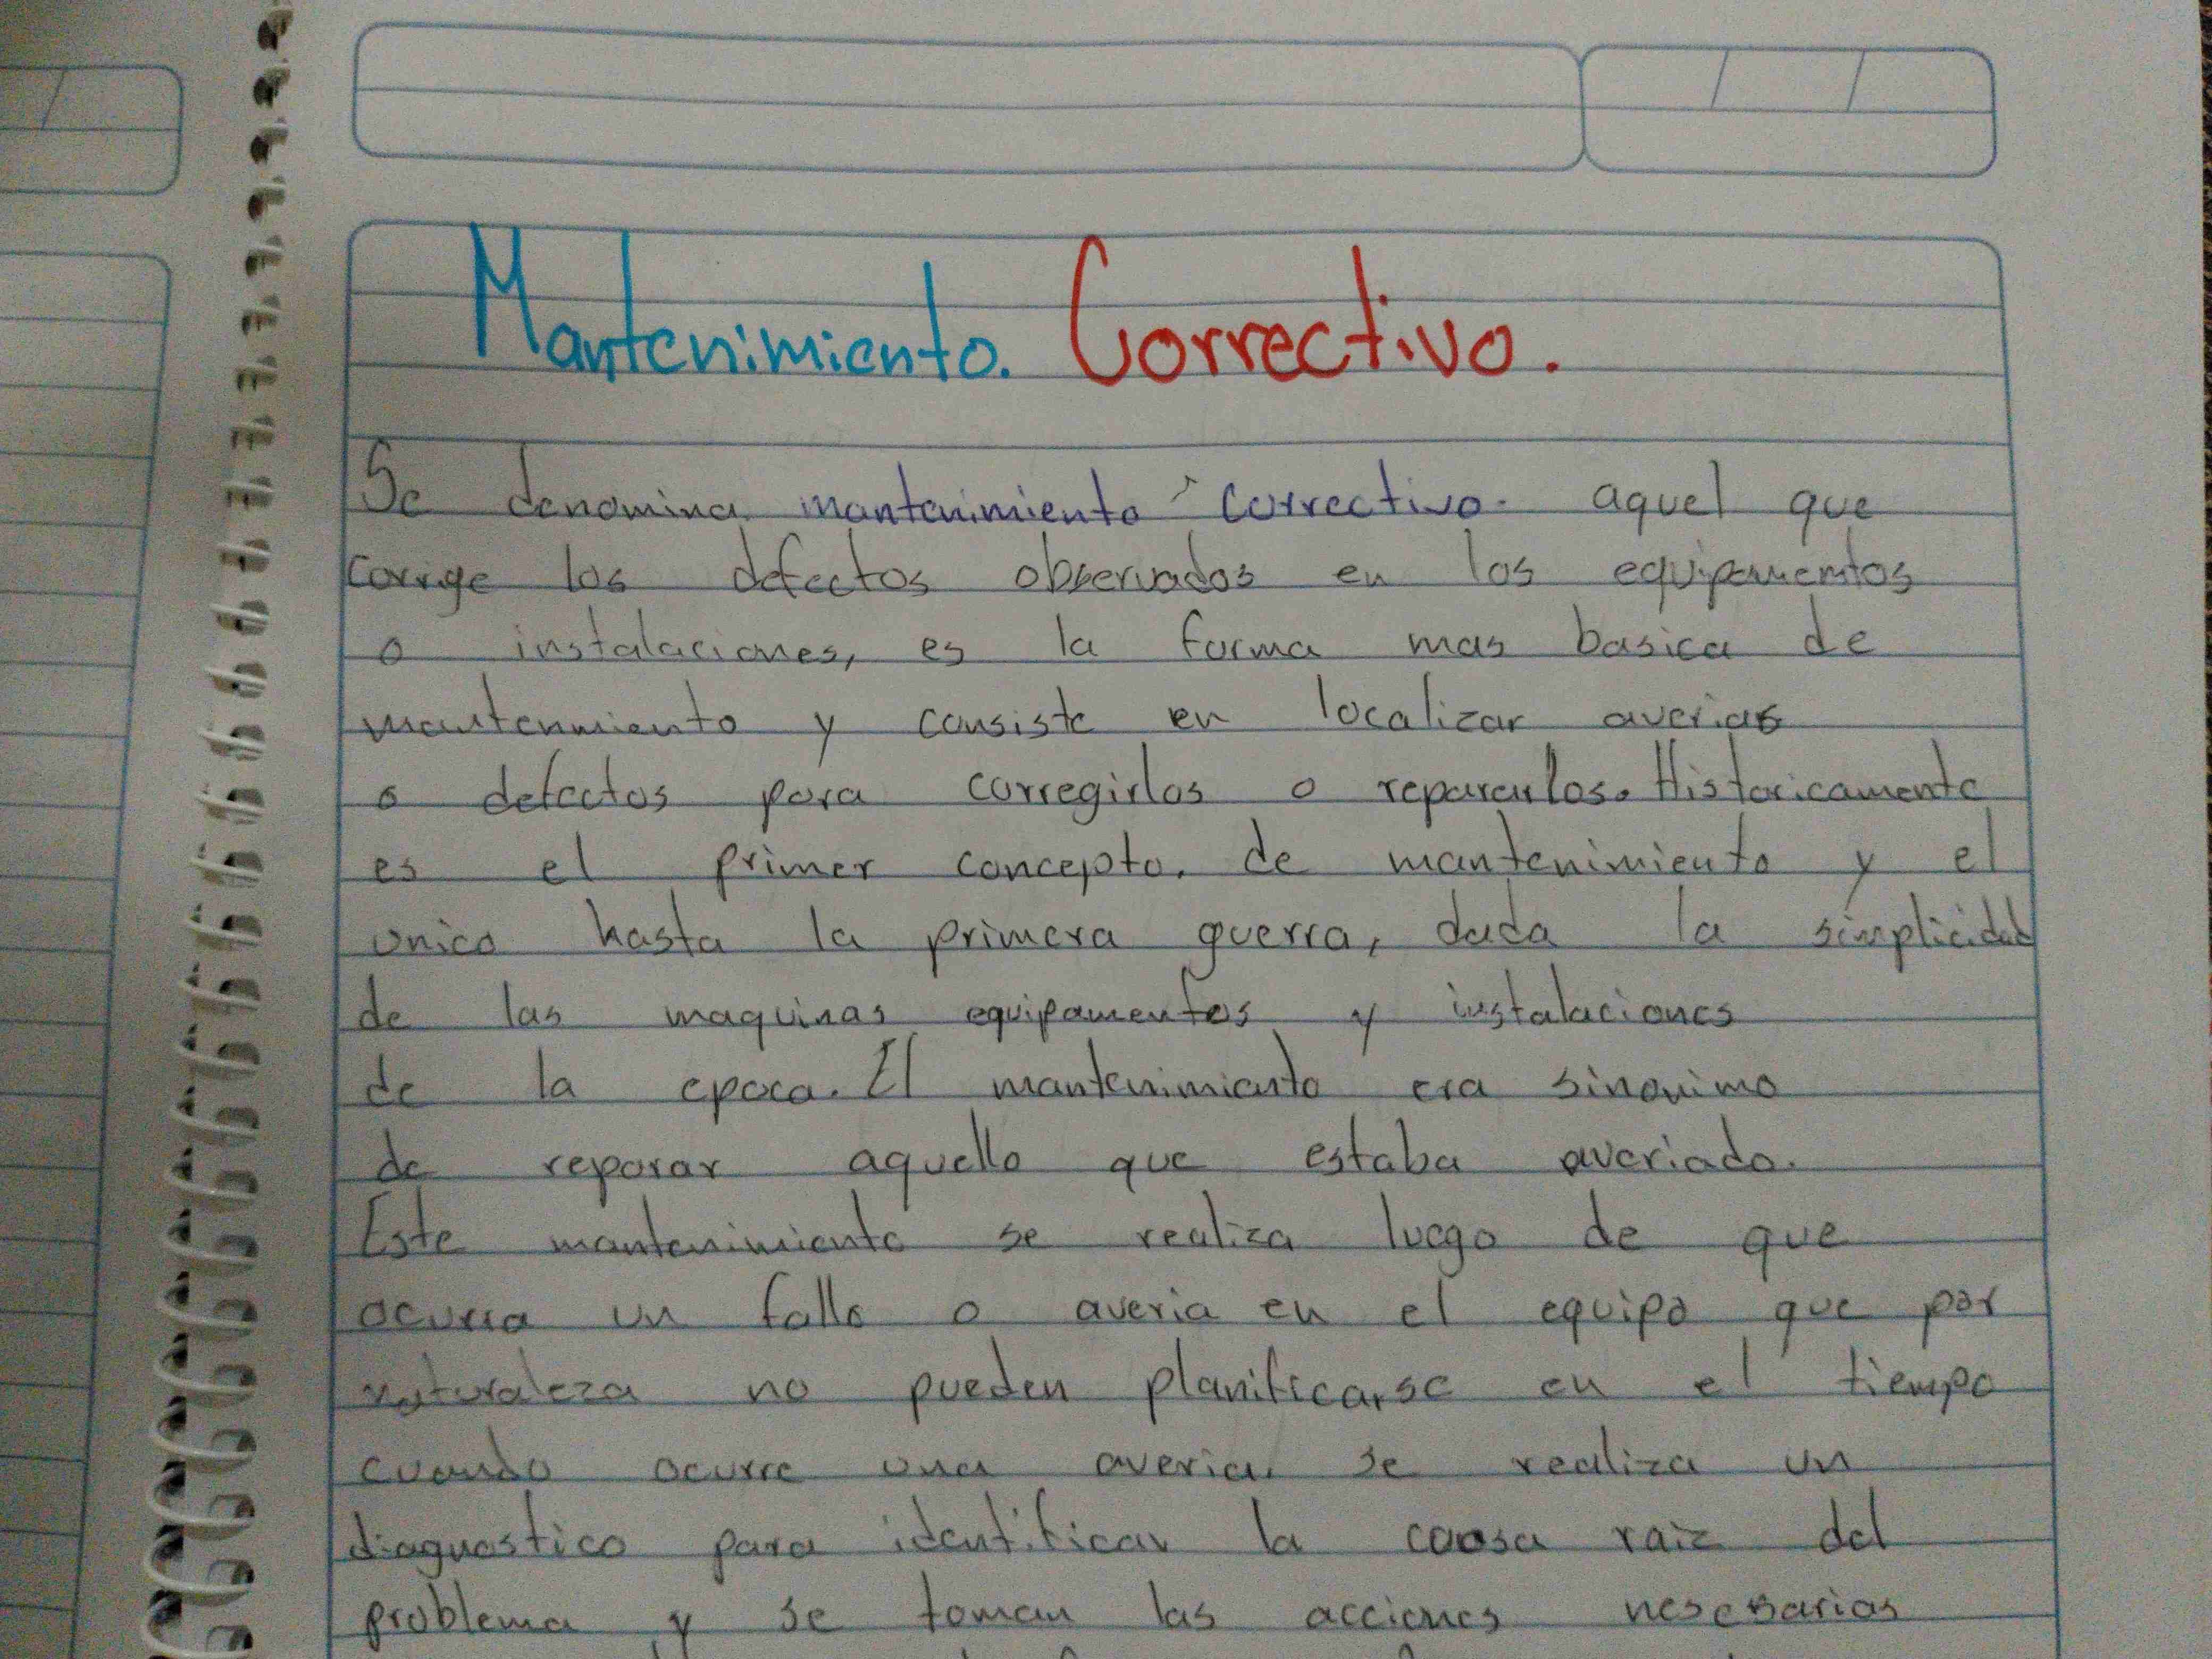 Mantenimiento. Correctivo.
Se denomina mantenimiento correctivo. aquel que
corrige los defectos observados en los equipamentos
o instalaciones, es la forma mas basica de
mantenmiento y consiste en localizar averias
o defectos para corregirlos o repararlos. Historicamente
es el primer concepto. de mantenimiento y el
unico hasta la primera guerra, dada la simplicidad
de las maquinas equipamentos y instalaciones
de la epoca. El mantenimiento era sinonimo
de reparar aquello que estaba averiado.
Este mantenimiento se realiza luego de que
ocurra un fallo o averia en el equipo que por
naturaleza no pueden planificarse en el tiempo
cuando ocurre una averia se realiza un
diagnostico para identificar la causa raiz del
problema y se toman las acciones nesesarias